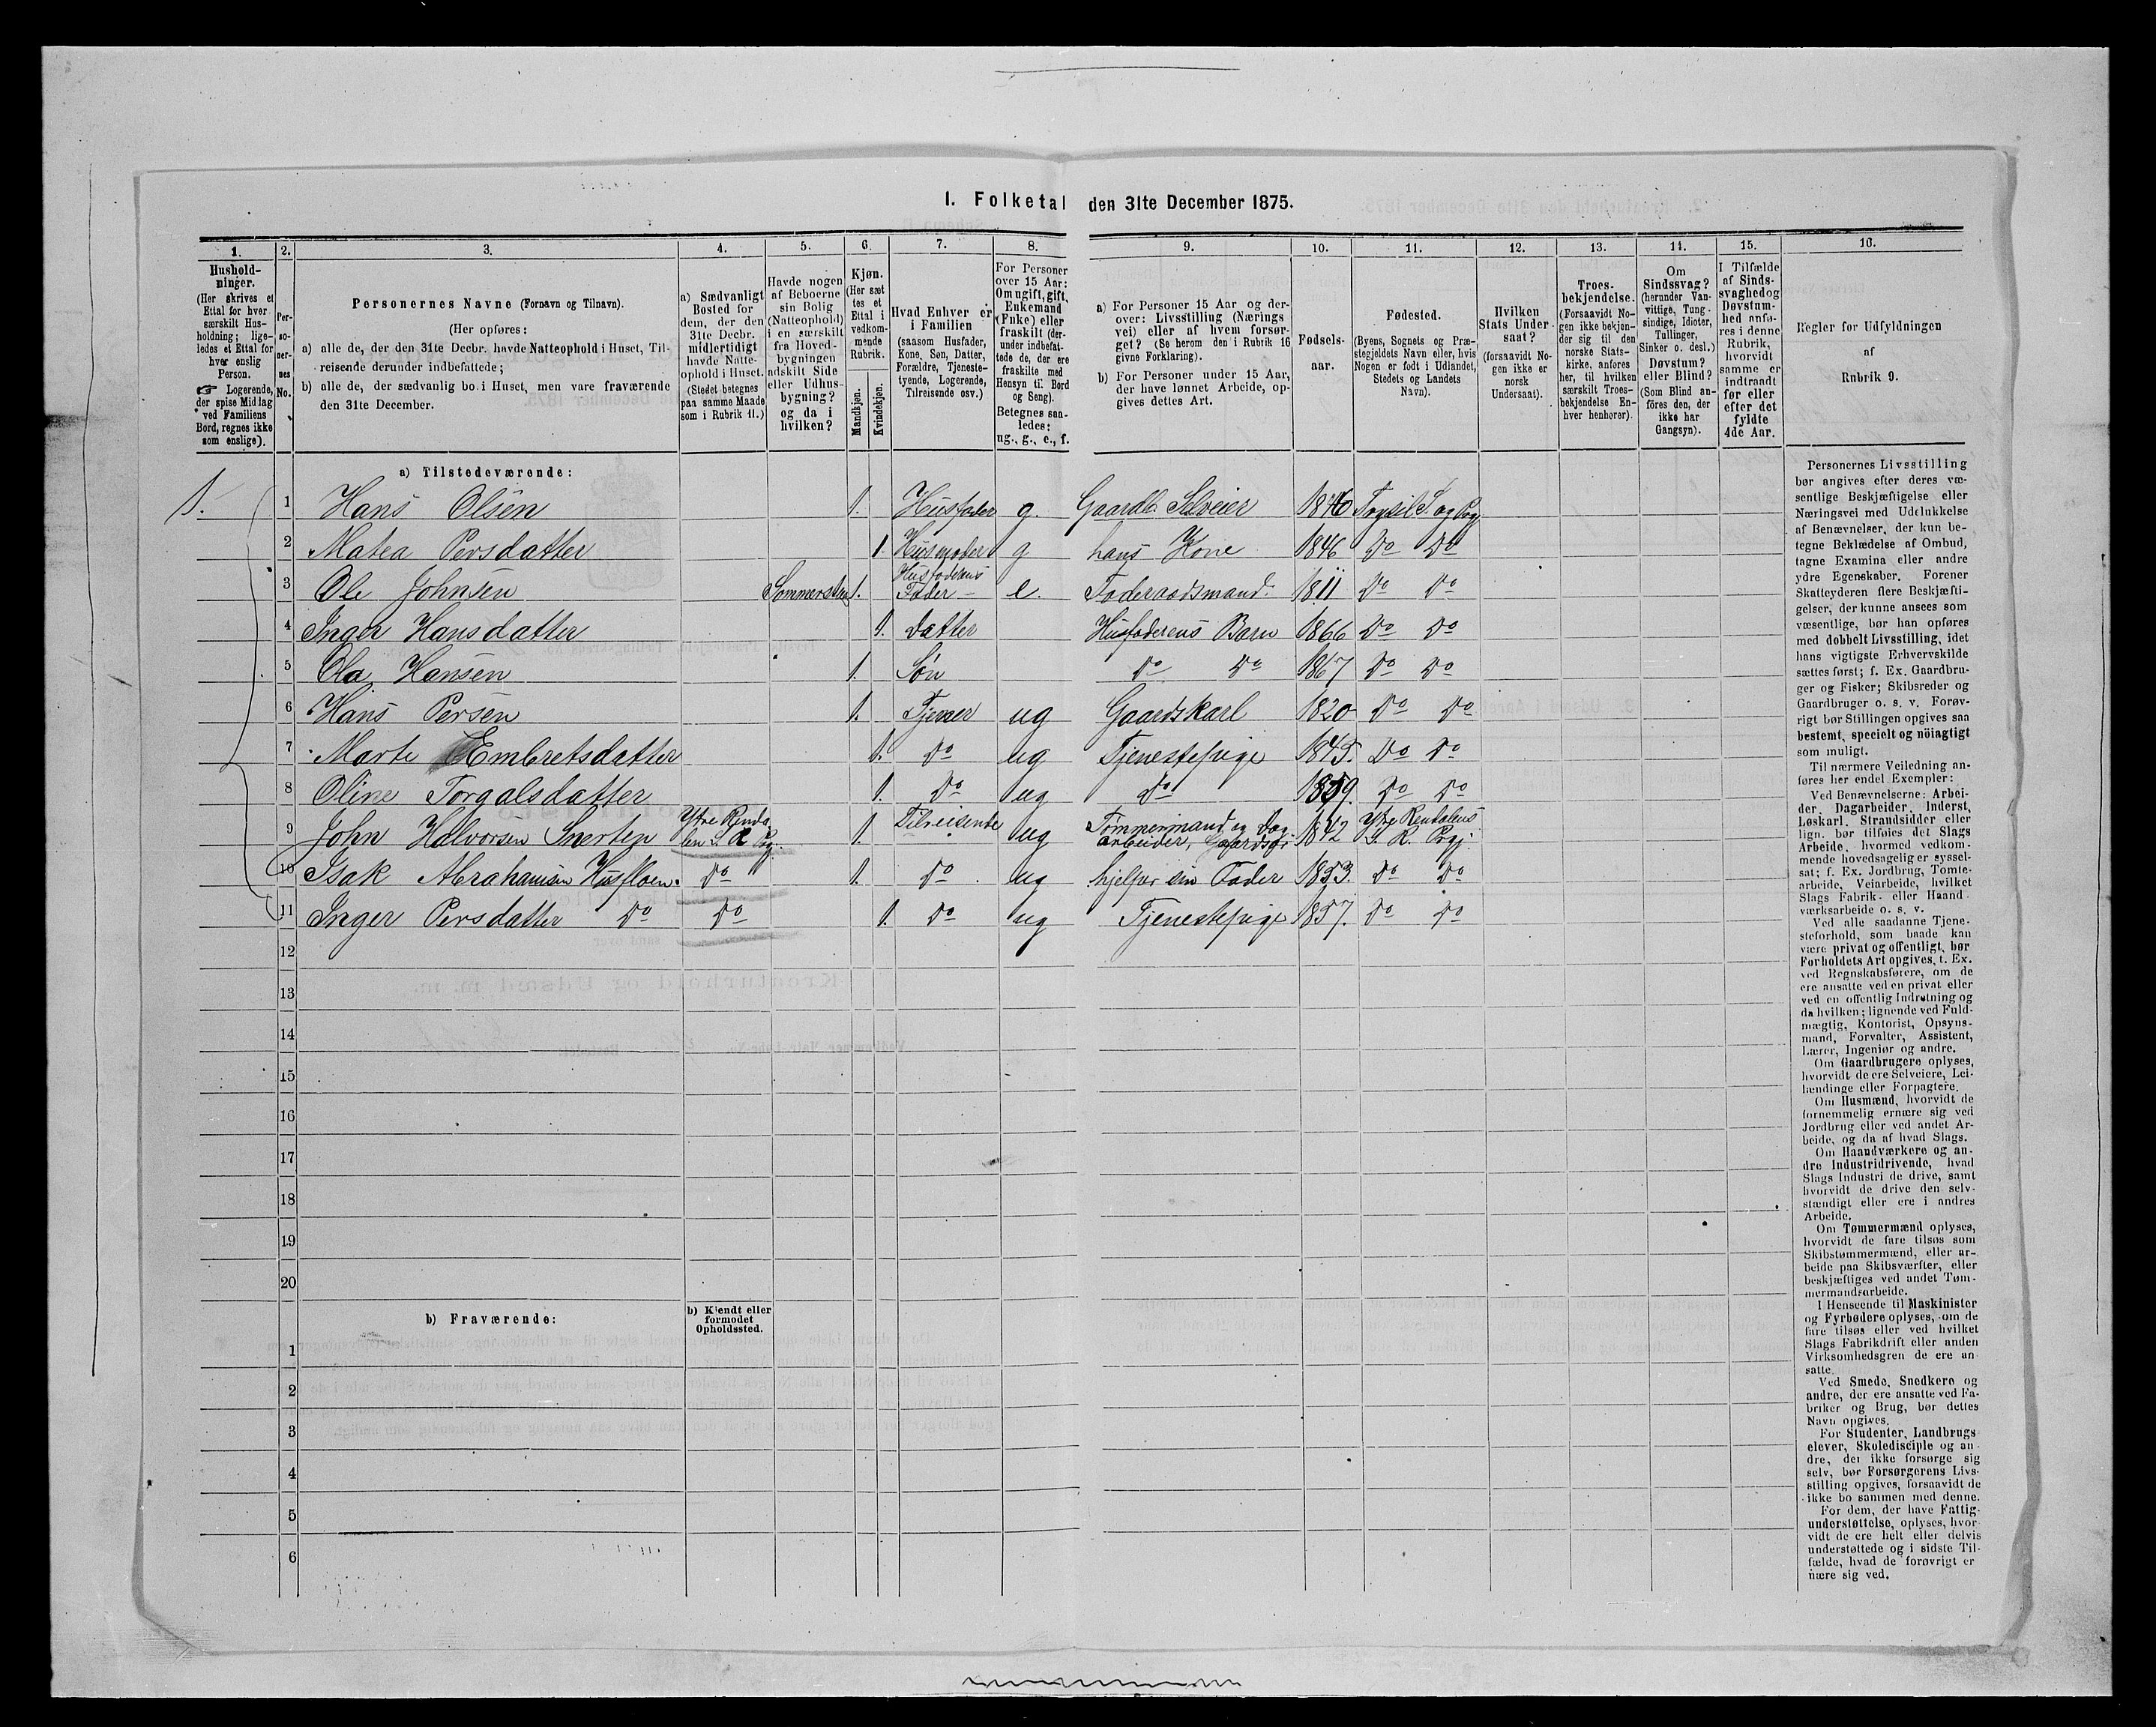 I. Folketal den 31te December 1875.
1. 2. 3. 4. 5. 6. 7. 8. 9. 10. 11. 12. 13. 14. 15. 16.
Hushold-
ninger.
(Her skrives et
Ettal for hver
særskilt Hus-
holdning; lige-
ledes et Ettal for
hver enslig
Person.
☞ Logerende,
der spise Middag
ved Familiens
Bord, regnes ikke
som enslige).
Per-
so-
ner-
nes
No.
Personernes Navne (Fornavn og Tilnavn).
(Her opføres:
a) alle de, der den 31te Decbr. havde Natteophold i Huset, Til-
reisende derunder indbefattede;
b) alle de, der sædvanlig bo i Huset, men vare fraværende
den 31te December.
a) Sædvanligt
Bosted for
dem, der den
31te Decbr.
midlertidigt
havde Natte-
ophold i Huset.
(Stedet betegnes
paa samme Maade
som i Rubrik 11.)
Havde nogen
af Beboerne
sin Bolig
(Natteophold)
i en særskilt
fra Hoved-
bygningen
adskilt Side
eller Udhus-
bygning?
og da i
hvilken?
Kjøn.
(Her sæt
tes et
Ettal i
vedkom-
mende
Rubrik.
Mandkjøn.
Kvindekjøn.
Hvad Enhver er
i Familien
(saasom Husfader,
Kone, Søn, Datter,
Forældre, Tjeneste-
tyende, Logerende,
Tilreisende osv.)
For Personer
over 15 Aar:
Om ugift, gift,
Enkemand
(Enke) eller
fraskilt (der-
under indbefat-
tede de, der ere
fraskilte med
Hensyn til Bord
og Seng).
Betegnes saa-
ledes:
ug., g., e., f.
a) For Personer 15 Aar og der-
over: Livsstilling (Nærings
vei) eller af hvem forsør-
get? (Se herom den i Rubrik 16
givne Forklaring).
b) For Personer under 15 Aar,
der have lønnet Arbeide, op-
gives dettes Art.
Fødsels-
aar.
Fødested.
(Byens, Sognets og Præ-
stegjeldets Navn eller, hvis
Nogen er født i Udlandet,
Stedets og Landets
Navn).
Hvilken
Stats Under-
saat?
(forsaavidt No-
gen ikke er
norsk
Undersaat).
Troes-
bekjendelse.
(Forsaavidt No-
gen ikke bekjen-
der sig til den
norske Stats-
kirke, anføres
her, til hvilken
særskilt Troes-
bekjendelse En-
hver henhører).
Om
Sindssvag?
(herunder Van-
vittige, Tung-
sindige, Idioter,
Tullinger,
Sinker o. desl.)
Døvstum?
eller Blind?
(Som Blind an-
føres den, der
ikke har
Gangsyn).
I Tilfælde
af Sinds-
svaghed og
Døvstum-
hed anfø-
res i denne
Rubrik,
hvorvidt
samme er
indtraadt
før eller
efter det
fyldte
4de Aar.
Regler for Udfyldningen
af
Rubrik 9.
a) Tilstedeværende:
1. 1 Hans Olsen 1. Husfader g. Gaardb. Selveier 1840 Trysil S. og Pgj
2 Matea Persdatter 1. Husmoder g hans Kone 1846 Do Do
3 Ole Johnsen 1. Husfaderens Fader e. Foderaadsmand. 1811 Do Do
4 Inger Hansdatter 1. Datter Husfaderens Barn 1866 Do Do
5 Ola Hansen 1. Søn Do Do 1867 Do Do
6 Hans Persen 1. Tjener ug Gaardskarl 1820 Do Do
7 Marte Embretsdatter 1. Do ug Tjenestepige 1845. Do Do
8 Oline Torgalsdatter 1. Do ug Do 1859. Do Do
9 John Halvorsen Snerten Ytre Renda-
len S. R Pgj. 1. Tilreisende ug Tømmermand og Dag-
arbeider, 1842 Ytre Rendalens
S. R. Prgj.
10 Isak Abrahamsen Do 1. Do ug hjelper sin Fader 1853. Do Do
11 Inger Persdatter Do Do 1. Do ug Tjenestepige 1857. Do Do
12
13
14
15
16
17
18
19
20
b) Fraværende: b) Kjendt eller
formodet
Opholdssted.
1
2
3
4
5
6
Personernes Livsstilling
bør angives efter deres væ-
sentlige Beskjæftigelse eller
Næringsvei med Udelukkelse
af Benævnelser, der kun be-
tegne Beklædelse af Ombud,
tagne Examina eller andre
ydre Egenskaber. Forener
Skatteyderen flere Beskjæfti-
gelser, der kunne ansees som
væsentlige, bør han opføres
med dobbelt Livsstilling, idet
hans vigtigste Erhvervskilde
sættes først; f. Ex. Gaardbru-
ger og Fisker; Skibsreder og
Gaardbruger o. s. v. Forøv-
rigt bør Stillingen opgives saa
bestemt, specielt og nöiagtigt
som muligt.
Til nærmere Veiledning an-
føres her endel Exempler:
Ved Benævnelserne: Arbei-
der, Dagarbeider, Inderst,
Løskarl, Strandsidder eller
lign. bør tilføies det Slags
Arbeide, hvormed vedkom-
mende hovedsagelig er syssel-
sat; f. Ex. Jordbrug, Tomte-
arbeide, Veiarbeide, hvilket
Slags Fabrik- eller Haand-
værksarbeide o. s. v.
Ved alle saadanne Tjene-
steforhold, som baade kan
være privat og offentligt, bør
Forholdets Art opgives, t. Ex.
ved Regnskabsførere, om de
ere ansatte ved en privat eller
ved en offentlig Indretning og
da hvilken; lignende ved Fuld-
mægtig, Kontorist, Opsyns-
mand, Forvalter, Assistent,
Lærer, Ingeniør og andre.
Om Gaardbrugere oplyses,
hvorvidt de ere Selveiere, Lei-
lændinge eller Forpagtere.
Om Husmænd, hvorvidt de
fornemmelig ernære sig ved
Jordbrug eller ved andet Ar-
beide, og da af hvad Slags.
Om Haandværkere og an-
dre Industridrivende, hvad
Slags Industri de drive, samt
hvorvidt de drive den selv-
stændigt eller ere i andres
Arbeide.
Om Tømmermænd oplyses,
hvorvidt de fare tilsøs som
Skibstømmermænd, eller ar-
beide paa Skibsværfter, eller
beskjæftiges ved andet Tøm-
mermandsarbeide.
I Henseende til Maskinister
og Fyrbødere oplyses, om de
fare tilsøs eller ved hvilket
Slags Fabrikdrift eller anden
Virksomhedsgren de ere an-
satte.
Ved Smede, Snedkere og
andre, der ere ansatte ved Fa-
briker og Brug, bør dettes
Navn opgives.
For Studenter, Landbrugs
elever, Skoledisciple og an-
dre, der ikke forsørge sig
selv, bør Forsørgerens Livs-
stilling opgives, forsaavidt de
ikke bo sammen med denne.
For dem, der have Fattig-
understøttelse, oplyses, hvor-
vidt de ere helt eller delvis
understøttede og i sidste Til-
fælde, hvad de forøvrigt er-
nære sig ved.